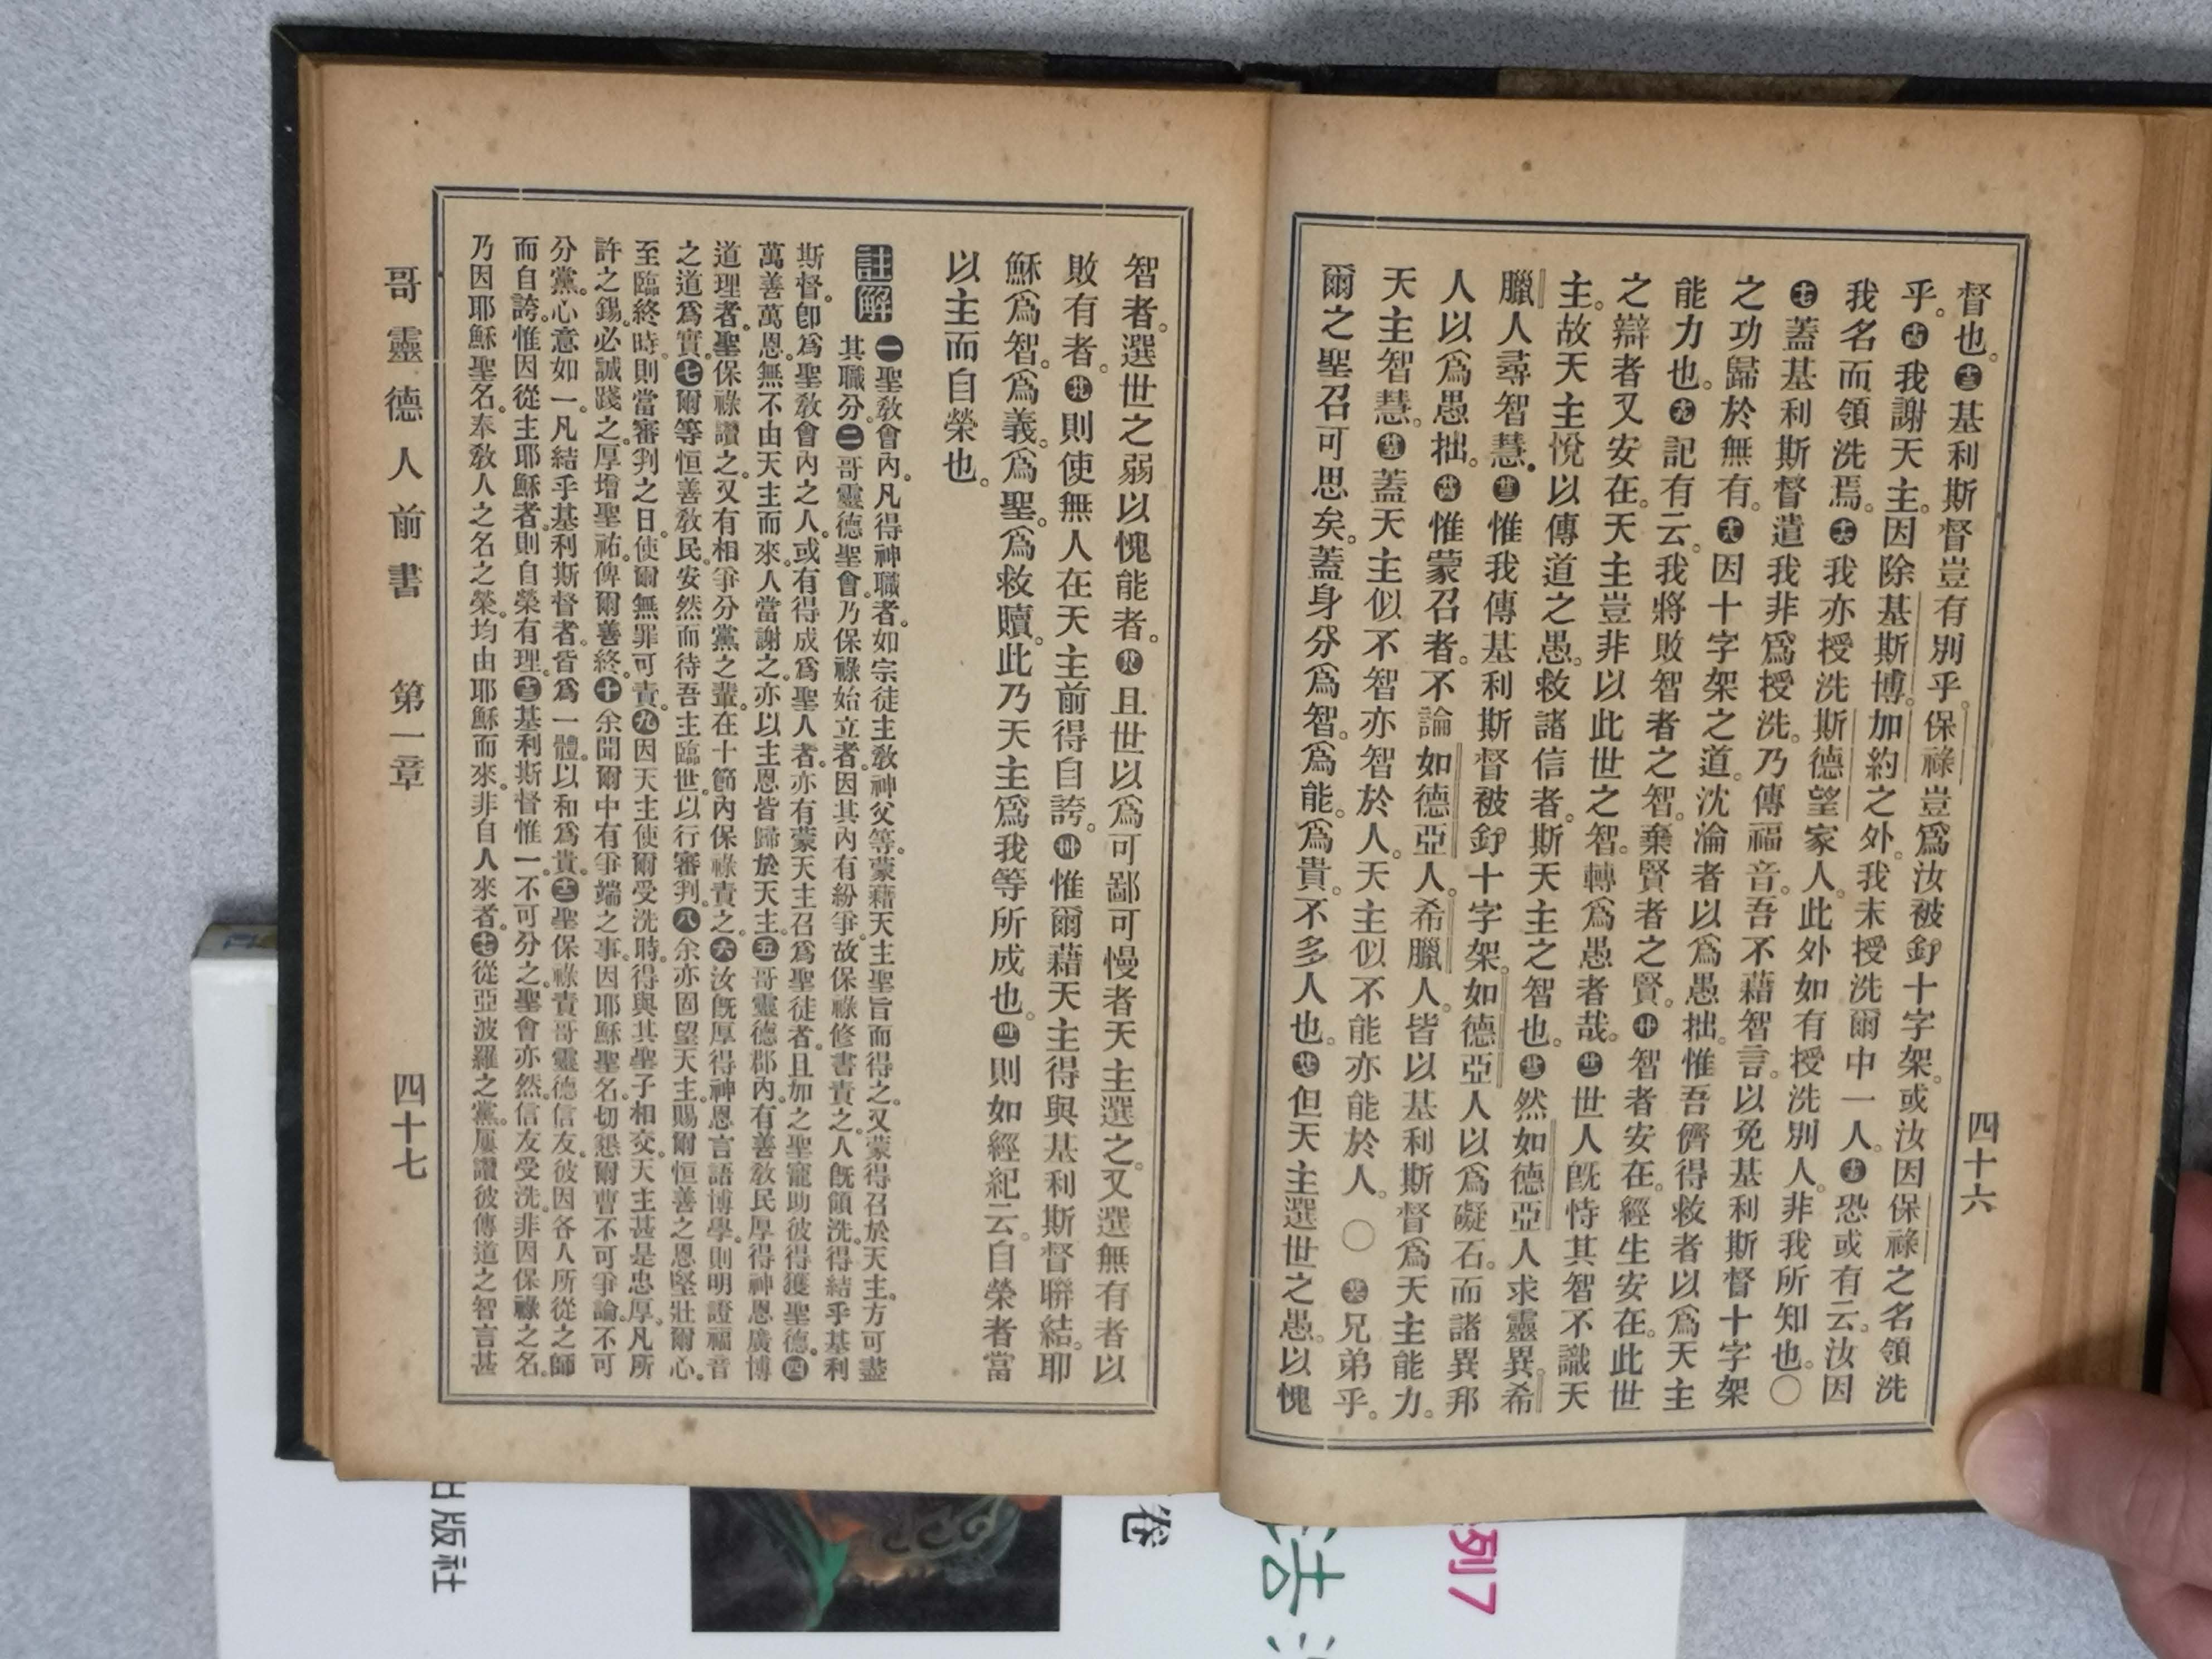 四十六
督也。⓭基利斯督豈有別乎。保祿豈爲汝被釘十字架。或汝因保祿之名領洗
乎。⓮我謝天主。因除基斯博。加約之外。我未授洗爾中一人。⓯恐或有云。汝因
我名而領洗焉。⓰我亦授洗斯德望家人。此外如有授洗別人。非我所知也。〇
⓱蓋基利斯督遣我非爲授洗。乃傳福音。吾不藉智言。以免基利斯督十字架
之功歸於無有。⓲因十字架之道。沈淪者以爲愚拙。惟吾儕得救者以爲天主
能力也。⓳記有云。我將敗智者之智。棄賢者之賢。⓴智者安在。經生安在。此世
之辯者又安在。天主豈非以此世之智。轉爲愚者哉。㉑世人旣恃其智不識天
主。故天主悅以傳道之愚。救諸信者。斯天主之智也。㉒然如德亞人求靈異。希
臘人尋智慧。㉓惟我傳基利斯督被釘十字架。如德亞人以爲礙石。而諸異邦
人以爲愚拙。㉔惟蒙召者。不論如德亞人。希臘人。皆以基利斯督爲天主能力。
天主智慧。㉕蓋天主似不智亦智於人。天主似不能亦能於人。〇㉖兄弟乎。
爾之聖召可思矣。蓋身分爲智。爲能。爲貴。不多人也。㉗但天主選世之愚。以愧
智者。選世之弱以愧能者。㉘且世以爲可鄙可慢者天主選之。又選無有者以
敗有者。㉙則使無人在天主前得自誇。㉚惟爾藉天主得與基利斯督聯結。耶
穌爲智。爲義。爲聖。爲救贖。此乃天主爲我等所成也。㉛則如經紀云。自榮者當
以主而自榮也。
註解 ㊀聖教會內。凡得神職者。如宗徒主教神父等。蒙藉天主聖旨而得之。又蒙得召於天主。方可盡
其職分。㊁哥靈德聖會。乃保祿始立者。因其內有紛爭。故保祿修書責之。人旣領洗。得結乎基利
斯督。卽爲聖教會內之人。或有得成爲聖人者。亦有蒙天主召爲聖徒者。且加之聖寵助彼得獲聖德。㊃
萬善萬恩。無不由天主而來。人當謝之。亦以主恩皆歸於天主。㊄哥靈德郡內。有善教民厚得神恩廣博
道理者。聖保祿讚之。又有相爭分黨之輩。在十節內保祿責之。㊅汝旣厚得神恩言語博學。則明證福音
之道爲實。㊆爾等恒善教民。安然而待吾主臨世。以行審判。㊇余亦固望天主。賜爾恒善之恩堅壯爾心。
至臨終時。則當審判之日。使爾無罪可責。㊈因天主使爾受洗時。得與其聖子相交。天主甚是忠厚。凡所
許之錫。必誠踐之。厚增聖祐。俾爾善終。㊉余聞爾中有爭端之事。因耶穌聖名。切懇爾曹不可爭論。不可
分黨。心意如一。凡結乎基利斯督者。皆爲一體。以和爲貴。⓬聖保祿責哥靈德信友。彼因各人所從之師
而自誇。惟因從主耶穌者。則自榮有理。⓭基利斯督惟一。不可分之。聖會亦然。信友受洗。非因保祿之名。
乃因耶穌聖名。奉教人之名之榮。均由耶穌而來。非自人來者。⓱從亞波羅之黨。屢讚彼傳道之智言甚
哥靈德人前書 第一章 四十七
出版社
卷
法
列7